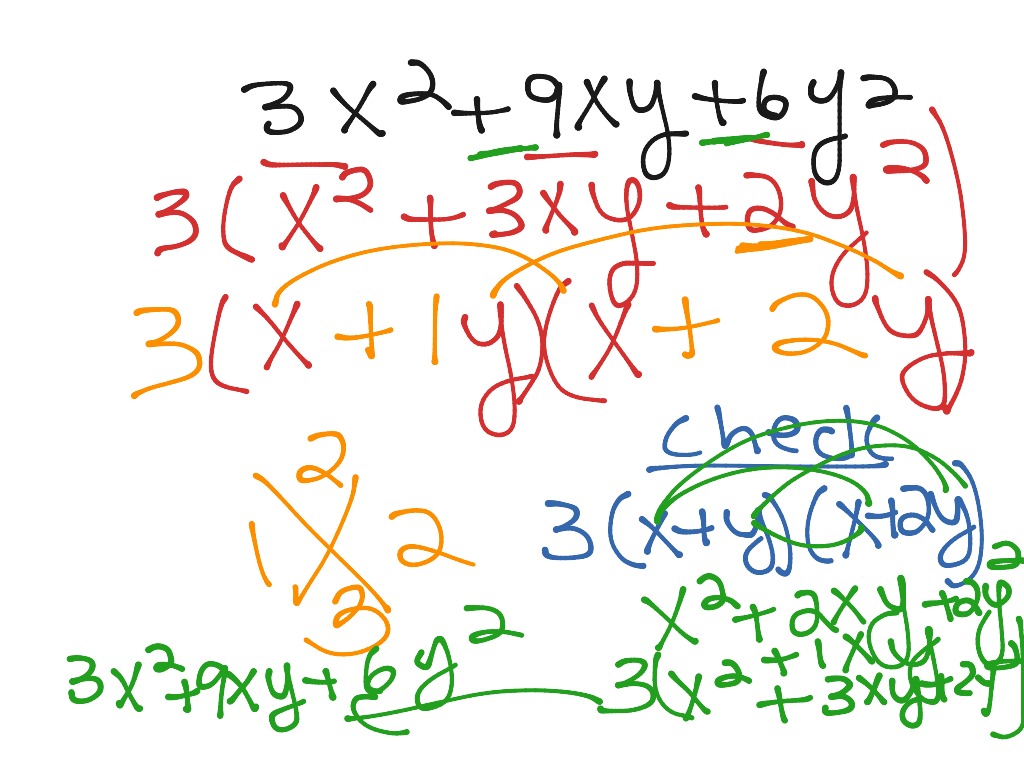 3x²+9xy+6y²
3(x²+3xy+2y²)
3(x+1y)(x+2y)
check
2
1 2
3
3(x+y)(x+2y)
x²+2xy+2y²
+1xy
3x²+9xy+6y²
3(x²+3xy+2y²)